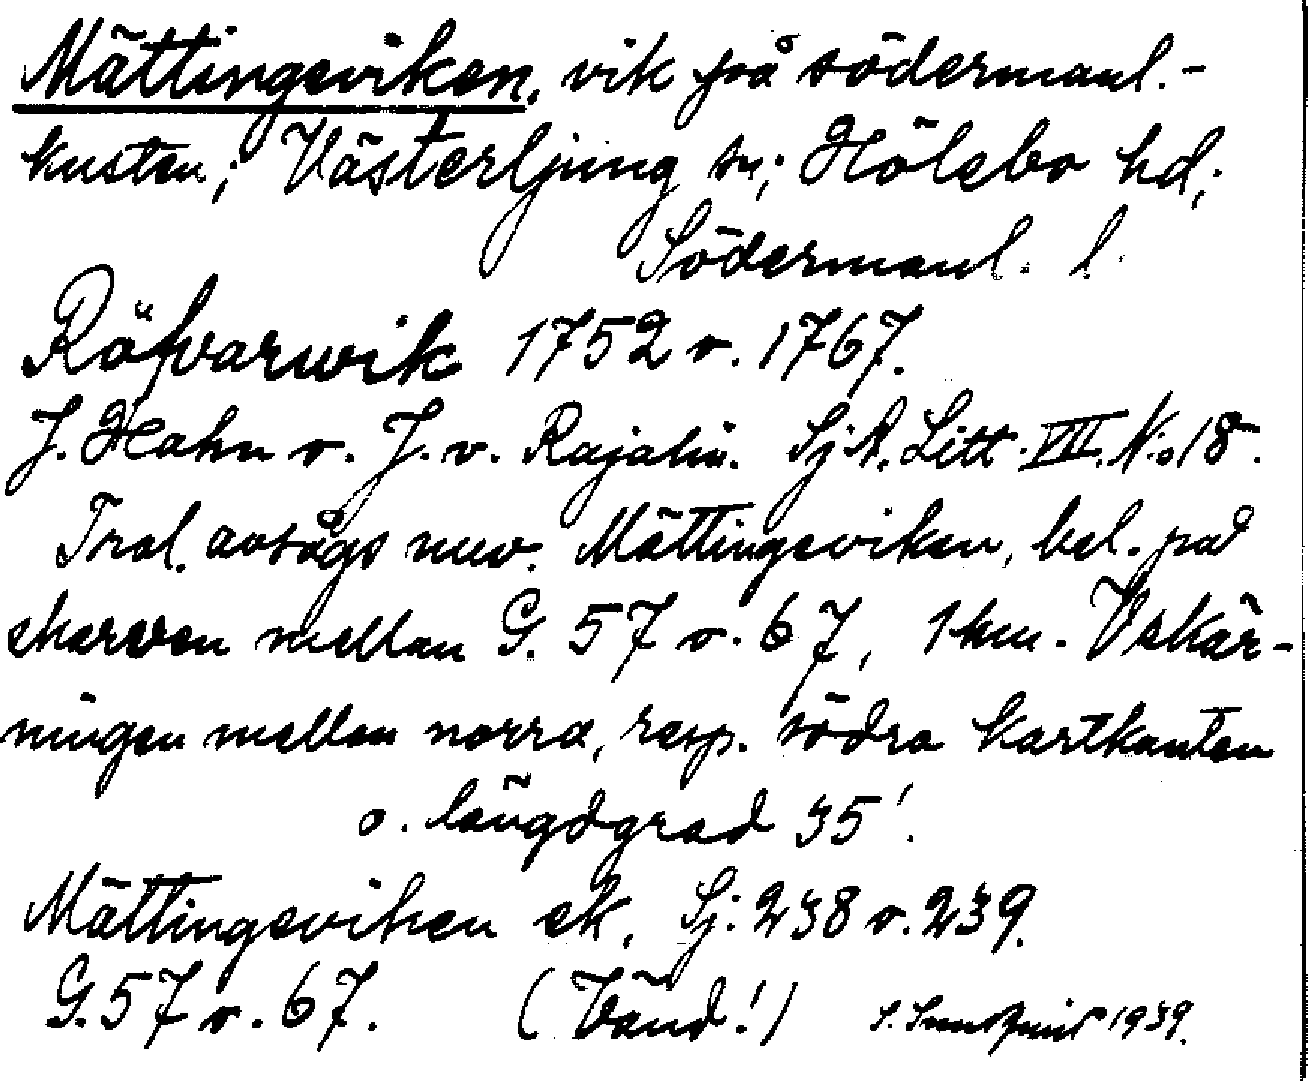 Mättingeviken, vik på södermanl.-
kusten; Västerljung sn; Hölebo hd;
Södermanl. l.
Röfvarwik 1752 o. 1767.
J. Hahn o. J. v. Rajalin. Sj.A. Litt. VIII. N:o 18.
Trol. avságs nuv. Mättingeviken, bel. på
skarven mellan G. 57 o. 67, 1 km. V skär-
ningen mellan norra, resp. södra kartkanten
o. längdgrad 35'.
Mättingeviken ek. Sj: 238 o. 239.
G. 57 o. 67. (Vänd!) 1939.